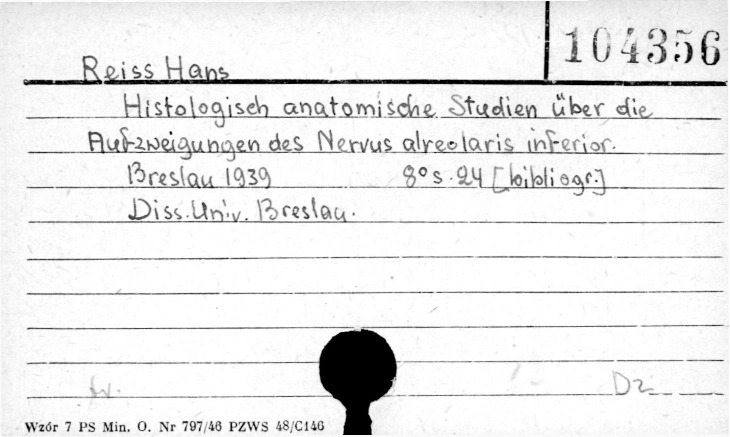 104356
Reiss Hans
Histologisch anatomische Studien über die
Aufzweigungen des Nervus alveolaris inferior.
Breslau 1939 8° s. 24 [bibliogr.]
Diss. Univ. Breslau.
Dz
Wzór 7 PS Min. O. Nr 797/46 PZWS 48/C146